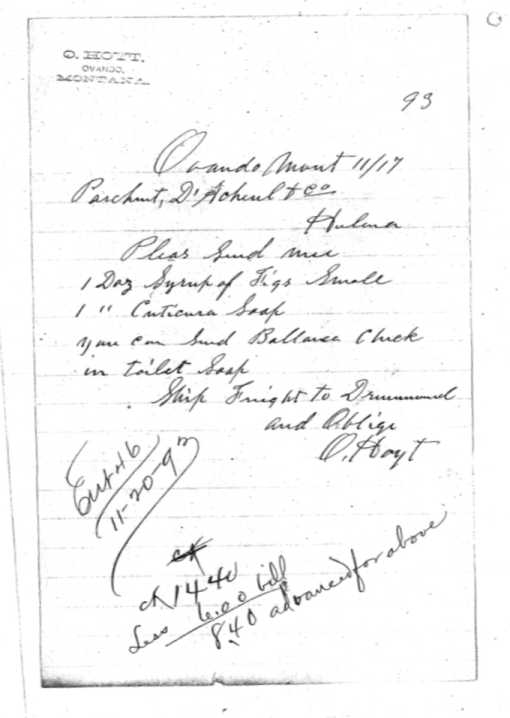 O. HOYT,
OVANDO,
MONTANA.
93
Ovando Mont 11/17
Parchent, D'Acheul & Co
Helena
Pleas Send me
1 Doz Syrup of Figs Small
1 " Cuticura Soap
you can Send Ballance Check
in toilet Soap
Ship Freight to Drummond
and Oblige
O. Hoyt
11-20-93
ck
ck 14 40
Less 6.00 bill
8.40 advanced for above